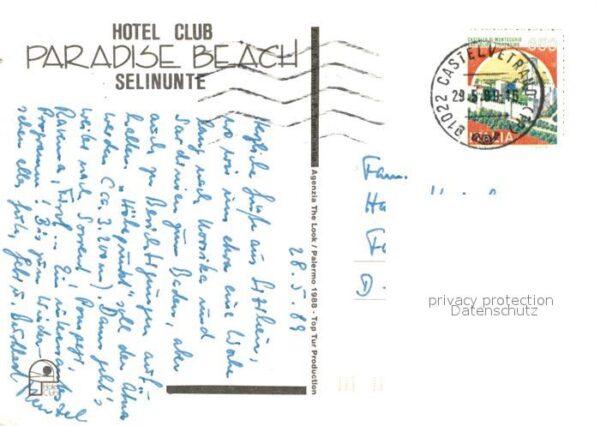 HOTEL CLUB
PARADISE BEACH
SELINUNTE
28.5.89
Herzliche Grüße aus Sizilien,
wo wir nun schon eine Woche
lang nach Korsika und
Sardinien zum Baden, aber
auch zu Besichtigungen auf-
halten. "Höhepunkt" soll der Ätna
werden (ca. 3.200 m). Dann geht's
weiter nach Sorrent, Pompeji,
Ravenna, Tirol. Ein
Programm! Bis zum Wieder-
sehen alles Gute,
Agenzia The Look / Palermo 1988 - Top Tur Production
Fam.
D-
91022 CASTELVETRANO
29.5.89-16
650
ITALIA
privacy protection
Datenschutz